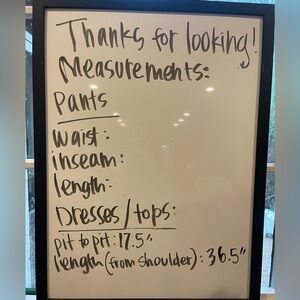 Thanks for looking!
Measurements:
Pants
waist:
inseam:
length:
Dresses/tops:
pit to pit: 17.5"
length (from shoulder): 36.5"